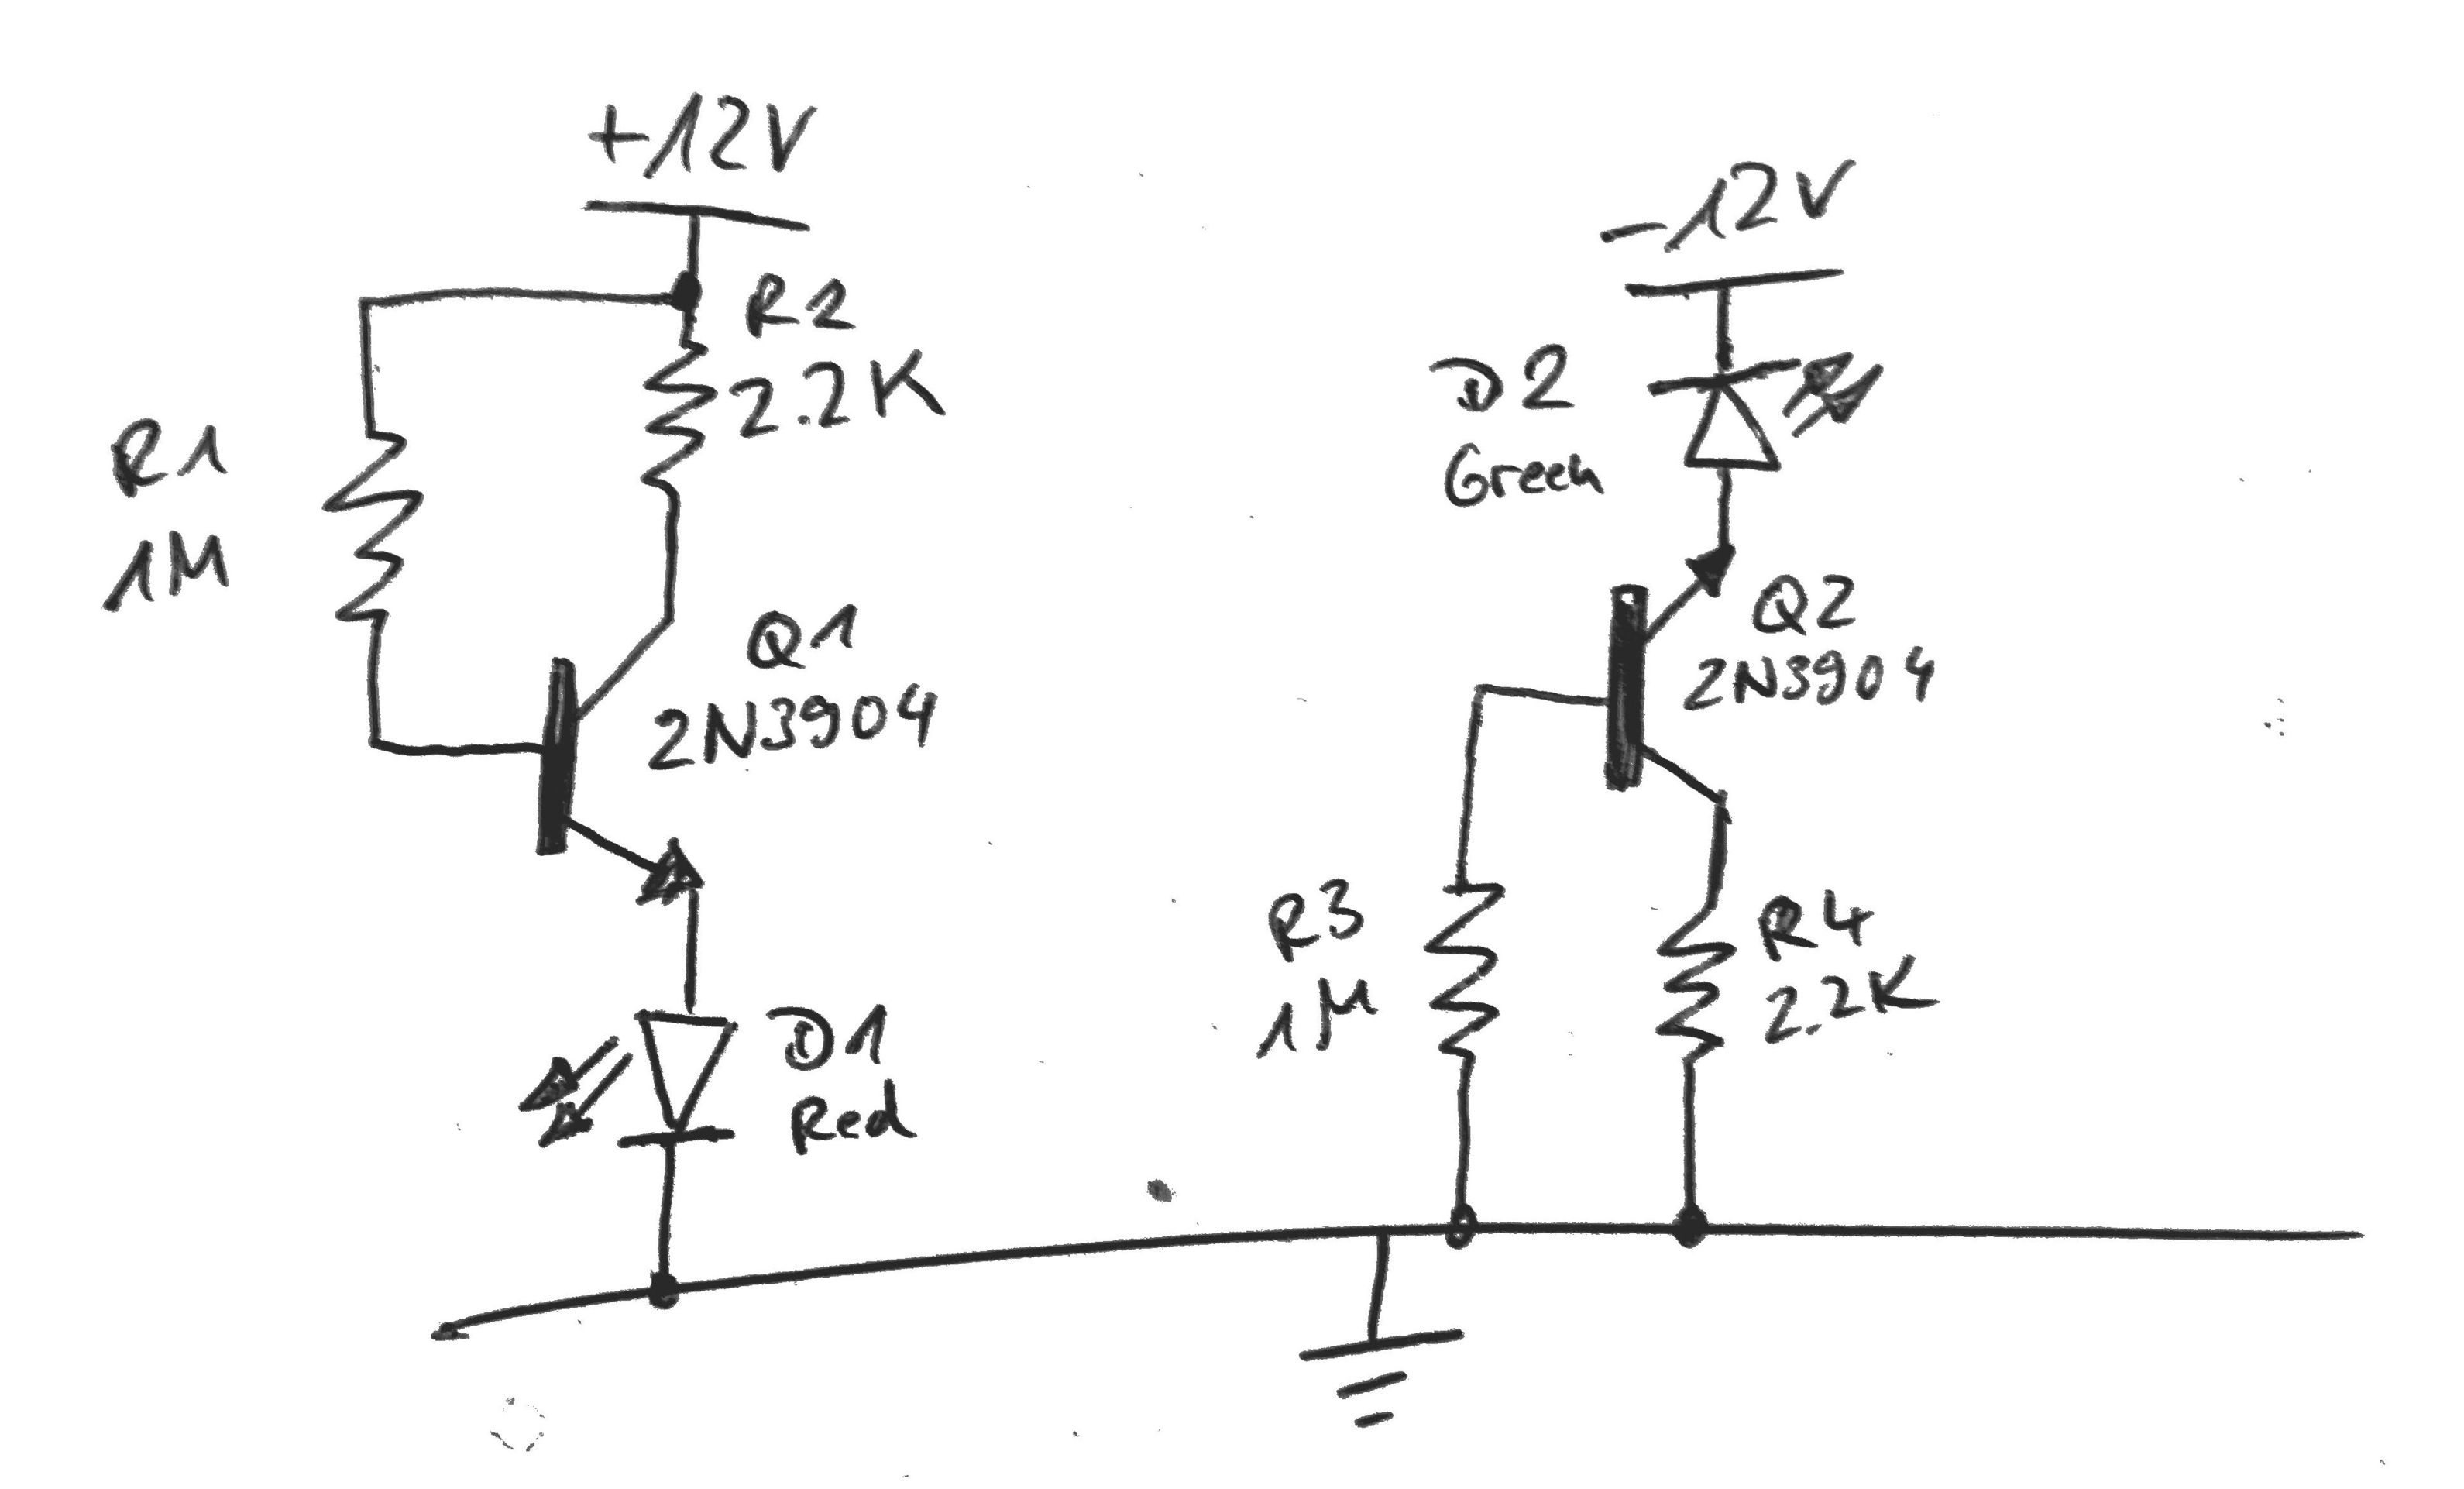 +12V
R2
2.2K
R1
1M
Q1
2N3904
D1
Red
-12V
D2
Green
Q2
2N3904
R3
1M
R4
2.2K